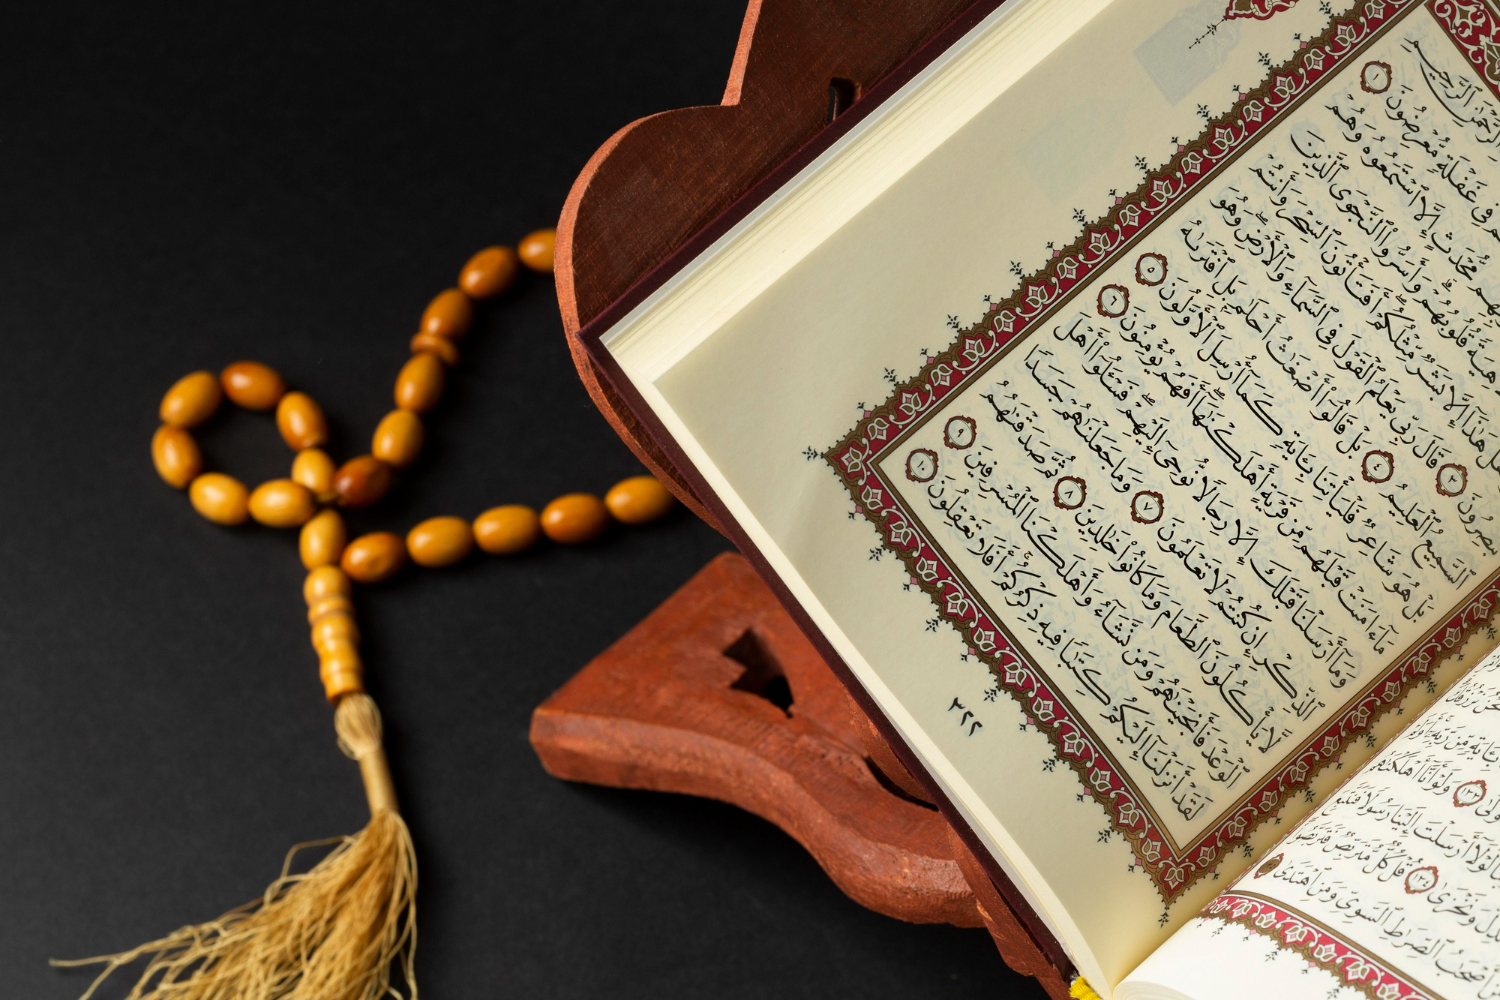 ٱلرَّحْمَٰنِ ٱلرَّحِيمِ
فِى غَفْلَةٍ مُّعْرِضُونَ ١
مُّحْدَثٍ إِلَّا ٱسْتَمَعُوهُ وَهُمْ
لَاهِيَةً قُلُوبُهُمْ وَأَسَرُّوا۟ ٱلنَّجْوَى ٱلَّذِينَ
هَلْ هَٰذَآ إِلَّا بَشَرٌ مِّثْلُكُمْ أَفَتَأْتُونَ ٱلسِّحْرَ وَأَنتُمْ
تُبْصِرُونَ ٣ قَالَ رَبِّى يَعْلَمُ ٱلْقَوْلَ فِى ٱلسَّمَآءِ وَٱلْأَرْضِ وَهُوَ
ٱلسَّمِيعُ ٱلْعَلِيمُ ٤ بَلْ قَالُوٓا۟ أَضْغَٰثُ أَحْلَٰمٍۭ بَلِ ٱفْتَرَىٰهُ
بَلْ هُوَ شَاعِرٌ فَلْيَأْتِنَا بِـَٔايَةٍ كَمَآ أُرْسِلَ ٱلْأَوَّلُونَ ٥
مَآ ءَامَنَتْ قَبْلَهُم مِّن قَرْيَةٍ أَهْلَكْنَٰهَآ أَفَهُمْ يُؤْمِنُونَ ٦
وَمَآ أَرْسَلْنَا قَبْلَكَ إِلَّا رِجَالًا نُّوحِىٓ إِلَيْهِمْ فَسْـَٔلُوٓا۟ أَهْلَ
ٱلذِّكْرِ إِن كُنتُمْ لَا تَعْلَمُونَ ٧ وَمَا جَعَلْنَٰهُمْ جَسَدًا
لَّا يَأْكُلُونَ ٱلطَّعَامَ وَمَا كَانُوا۟ خَٰلِدِينَ ٨ ثُمَّ صَدَقْنَٰهُمُ
ٱلْوَعْدَ فَأَنجَيْنَٰهُمْ وَمَن نَّشَآءُ وَأَهْلَكْنَا ٱلْمُسْرِفِينَ ٩
لَقَدْ أَنزَلْنَآ إِلَيْكُمْ كِتَٰبًا فِيهِ ذِكْرُكُمْ أَفَلَا تَعْقِلُونَ ١٠
٣٢٢
بِـَٔايَةٍ مِّن رَّبِّهِۦٓ أَوَلَمْ
١٣٣ وَلَوْ أَنَّآ أَهْلَكْنَٰهُم
لَوْلَآ أَرْسَلْتَ إِلَيْنَا رَسُولًا فَنَتَّبِعَ
نَّذِلَّ وَنَخْزَىٰ ١٣٤ قُلْ كُلٌّ مُّتَرَبِّصٌ فَتَرَبَّصُوا۟
أَصْحَٰبُ ٱلصِّرَٰطِ ٱلسَّوِىِّ وَمَنِ ٱهْتَدَىٰ